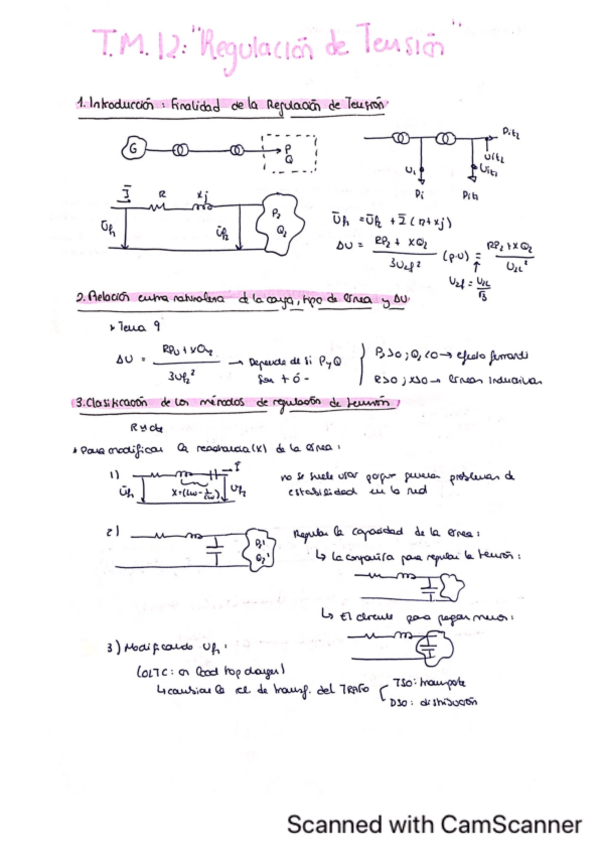 T.M.12: "Regulación de Tensión"
1. Introducción: Finalidad de la Regulación de Tensión:
G
P
Q
Ui
Pi
Pit1
Uit1
Uit2
Pit2
Ī R Xj
Ūf1 Ūf2 P2 Q2
Ūf1 = Ūf2 + Ī (R+Xj)
ΔU = RP2 + XQ2 / 3U2f² (p.u) = RP2+XQ2 / U2L²
U2f = U2L / √3
2. Relación entre naturaleza de la carga, tipo de línea y ΔU:
Tema 9
ΔU = RP2 + XQ2 / 3Uf2² → Depende de si P y Q son + ó -
P2>0; Q2<0 → efecto ferranti
R>0; X>0 → líneas inductivas
3. Clasificación de los métodos de regulación de tensión:
R y cte
Para modificar la reactancia (X) de la línea:
1) Ūf1 X=(Lω - 1/Cω) Ūf2 I
no se suele usar porque pueden problemas de
estabilidad en la red
2) P2' Q2' Regular la capacidad de la línea:
↳ La compañía para regular la tensión:
↳ El cliente para pagar menos:
3) Modificando Uf1:
(OLTC: on load tap changer)
↳ cambiar la rel de transf. del TRAFO
TSO: transporte
DSO: distribución
Scanned with CamScanner